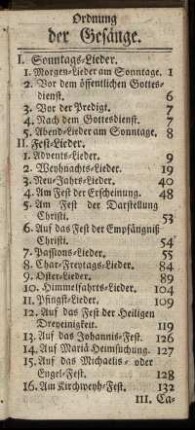 Ordnung
der Gesänge.
I. Sonntags-Lieder.
1. Morgen-Lieder am Sonntage. 1
2. Vor dem öffentlichen Gottes-
dienst. 6
3. Vor der Predigt. 7
4. Nach dem Gottesdienst. 7
5. Abend-Lieder am Sonntage. 8
II. Fest-Lieder.
1. Advents-Lieder. 9
2. Weyhnachts-Lieder. 19
3. Neu-Jahrs-Lieder. 40
4. Am Fest der Erscheinung. 48
5. Am Fest der Darstellung
Christi. 53
6. Auf das Fest der Empfängniß
Christi. 54
7. Passions-Lieder. 55
8. Char-Freytags-Lieder. 84
9. Oster-Lieder. 89
10. Himmelfahrts-Lieder. 104
11. Pfingst-Lieder. 109
12. Auf das Fest der Heiligen
Dreyeinigkeit. 119
13. Auf das Johannis-Fest. 126
14. Auf Mariä Heimsuchung. 127
15. Auf das Michaelis- oder
Engel-Fest. 128
16. Am Kirchweyh-Fest. 132
III. Ca-